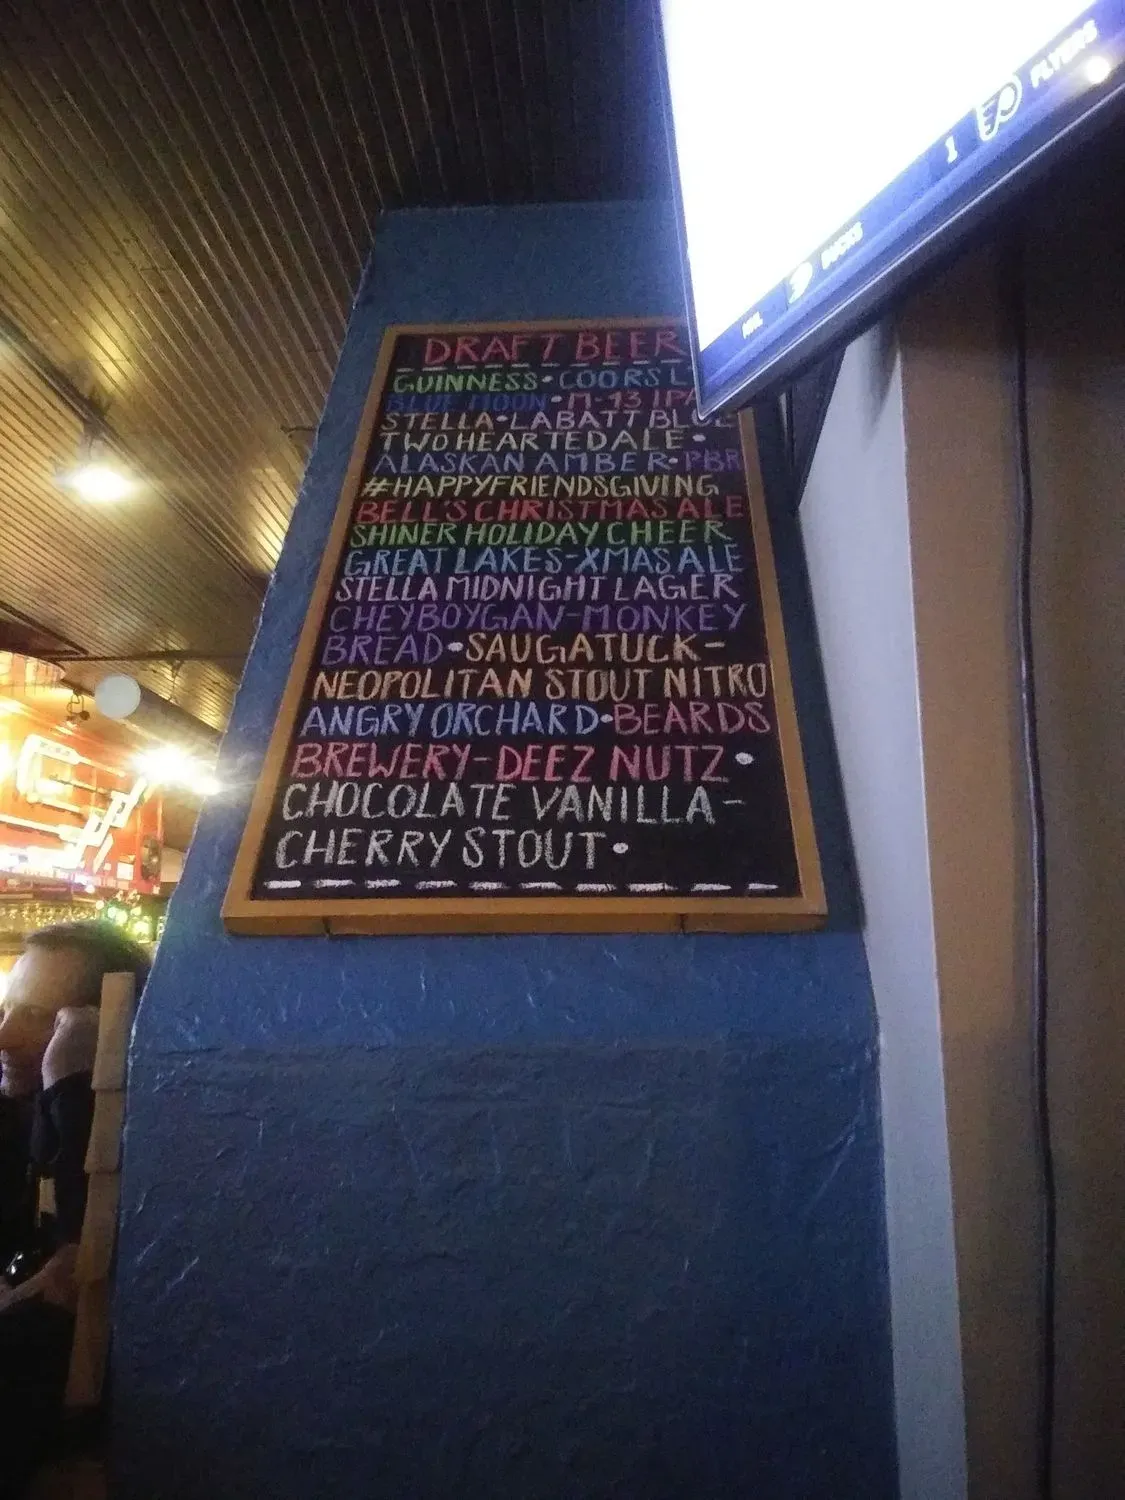 DRAFT BEER
GUINNESS • COORS L
BLUE MOON • M-43 IPA
STELLA • LABATT BLUE
TWO HEARTED ALE •
ALASKAN AMBER • PBR
#HAPPYFRIENDSGIVING
BELL'S CHRISTMAS ALE
SHINER HOLIDAY CHEER
GREAT LAKES-XMAS ALE
STELLA MIDNIGHT LAGER
CHEYBOYGAN-MONKEY
BREAD • SAUGATUCK-
NEOPOLITAN STOUT NITRO
ANGRY ORCHARD • BEARDS
BREWERY-DEEZ NUTZ •
CHOCOLATE VANILLA-
CHERRY STOUT •
NHL DUCKS 1 P FLYERS